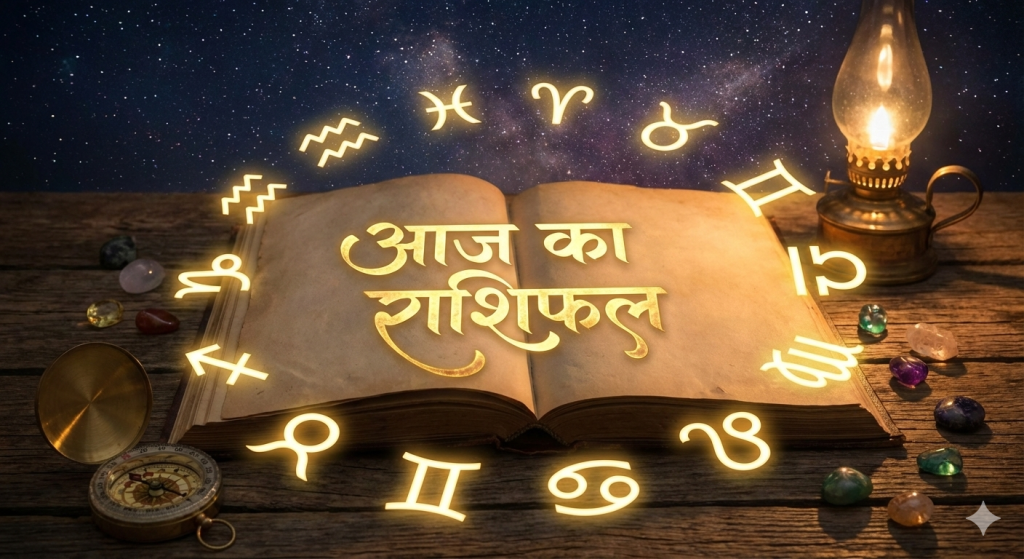 आज का
राशिफल